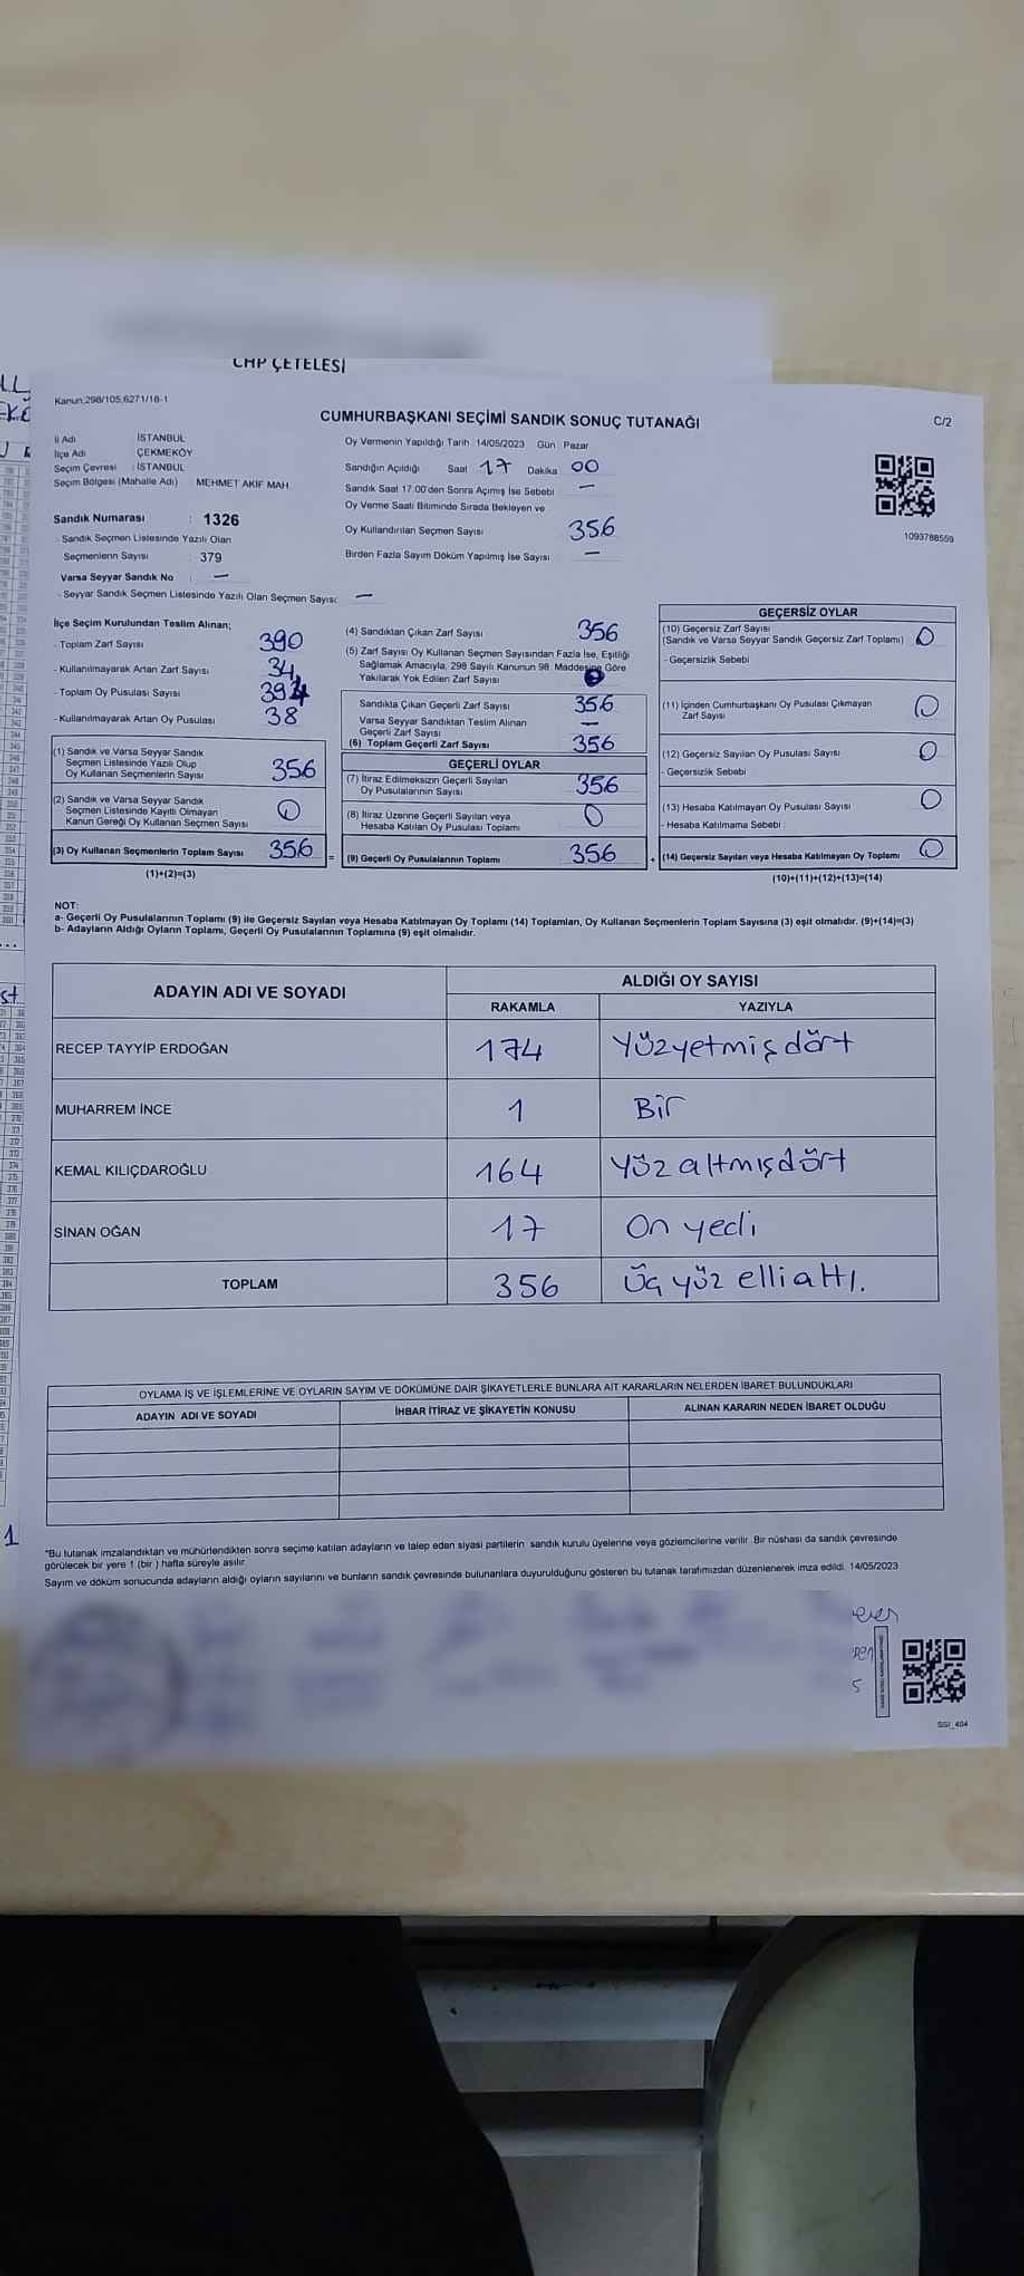 CHP ÇETELESİ
Kanun;298/105,6271/18-1
CUMHURBAŞKANI SEÇİMİ SANDIK SONUÇ TUTANAĞI
C/2
İl Adı İSTANBUL
İlçe Adı ÇEKMEKÖY
Seçim Çevresi : İSTANBUL
Seçim Bölgesi (Mahalle Adı) MEHMET AKİF MAH.
Oy Vermenin Yapıldığı Tarih 14/05/2023 Gün Pazar
Sandığın Açıldığı Saat 17 Dakika 00
Sandık Saat 17.00'den Sonra Açımış İse Sebebi —
Oy Verme Saati Bitiminde Sırada Bekleyen ve
Oy Kullandırılan Seçmen Sayısı 356
Birden Fazla Sayım Döküm Yapılmış İse Sayısı —
1093788559
Sandık Numarası : 1326
- Sandık Seçmen Listesinde Yazılı Olan
Seçmenlerin Sayısı : 379
Varsa Seyyar Sandık No : —
- Seyyar Sandık Seçmen Listesinde Yazılı Olan Seçmen Sayısı: —
İlçe Seçim Kurulundan Teslim Alınan;
- Toplam Zarf Sayısı 390
- Kullanılmayarak Artan Zarf Sayısı 34
- Toplam Oy Pusulası Sayısı 394
- Kullanılmayarak Artan Oy Pusulası 38
(1) Sandık ve Varsa Seyyar Sandık
Seçmen Listesinde Yazılı Olup
Oy Kullanan Seçmenlerin Sayısı 356
(2) Sandık ve Varsa Seyyar Sandık
Seçmen Listesinde Kayıtlı Olmayan
Kanun Gereği Oy Kullanan Seçmen Sayısı 0
(3) Oy Kullanan Seçmenlerin Toplam Sayısı 356
(1)+(2)=(3)
(4) Sandıktan Çıkan Zarf Sayısı 356
(5) Zarf Sayısı Oy Kullanan Seçmen Sayısından Fazla İse, Eşitliği
Sağlamak Amacıyla, 298 Sayılı Kanunun 98. Maddesine Göre
Yakılarak Yok Edilen Zarf Sayısı
Sandıkta Çıkan Geçerli Zarf Sayısı 356
Varsa Seyyar Sandıktan Teslim Alınan
Geçerli Zarf Sayısı —
(6) Toplam Geçerli Zarf Sayısı 356
GEÇERLİ OYLAR
(7) İtiraz Edilmeksizin Geçerli Sayılan
Oy Pusulalarının Sayısı 356
(8) İtiraz Üzerine Geçerli Sayılan veya
Hesaba Katılan Oy Pusulası Toplamı 0
(9) Geçerli Oy Pusulalarının Toplamı 356
GEÇERSİZ OYLAR
(10) Geçersiz Zarf Sayısı
(Sandık ve Varsa Seyyar Sandık Geçersiz Zarf Toplamı) 0
- Geçersizlik Sebebi
(11) İçinden Cumhurbaşkanı Oy Pusulası Çıkmayan
Zarf Sayısı 0
(12) Geçersiz Sayılan Oy Pusulası Sayısı 0
- Geçersizlik Sebebi
(13) Hesaba Katılmayan Oy Pusulası Sayısı 0
- Hesaba Katılmama Sebebi :
(14) Geçersiz Sayılan veya Hesaba Katılmayan Oy Toplamı 0
(10)+(11)+(12)+(13)=(14)
NOT:
a- Geçerli Oy Pusulalarının Toplamı (9) ile Geçersiz Sayılan veya Hesaba Katılmayan Oy Toplamı (14) Toplamları, Oy Kullanan Seçmenlerin Toplam Sayısına (3) eşit olmalıdır. (9)+(14)=(3)
b- Adayların Aldığı Oyların Toplamı, Geçerli Oy Pusulalarının Toplamına (9) eşit olmalıdır.
ADAYIN ADI VE SOYADI ALDIĞI OY SAYISI
RAKAMLA YAZIYLA
RECEP TAYYİP ERDOĞAN 174 Yüzyetmişdört
MUHARREM İNCE 1 Bir
KEMAL KILIÇDAROĞLU 164 Yüz altmışdört
SİNAN OĞAN 17 On yedi
TOPLAM 356 Üç yüz elli altı.
OYLAMA İŞ VE İŞLEMLERİNE VE OYLARIN SAYIM VE DÖKÜMÜNE DAİR ŞİKAYETLERLE BUNLARA AİT KARARLARIN NELERDEN İBARET BULUNDUKLARI
ADAYIN ADI VE SOYADI İHBAR İTİRAZ VE ŞİKAYETİN KONUSU ALINAN KARARIN NEDEN İBARET OLDUĞU
"Bu tutanak imzalandıktan ve mühürlendikten sonra seçime katılan adayların ve talep eden siyasi partilerin sandık kurulu üyelerine veya gözlemcilerine verilir. Bir nüshası da sandık çevresinde
görülecek bir yere 1 (bir) hafta süreyle asılır.
Sayım ve döküm sonucunda adayların aldığı oyların sayılarını ve bunların sandık çevresinde bulunanlara duyurulduğunu gösteren bu tutanak tarafımızdan düzenlenerek imza edildi. 14/05/2023
SSI_404